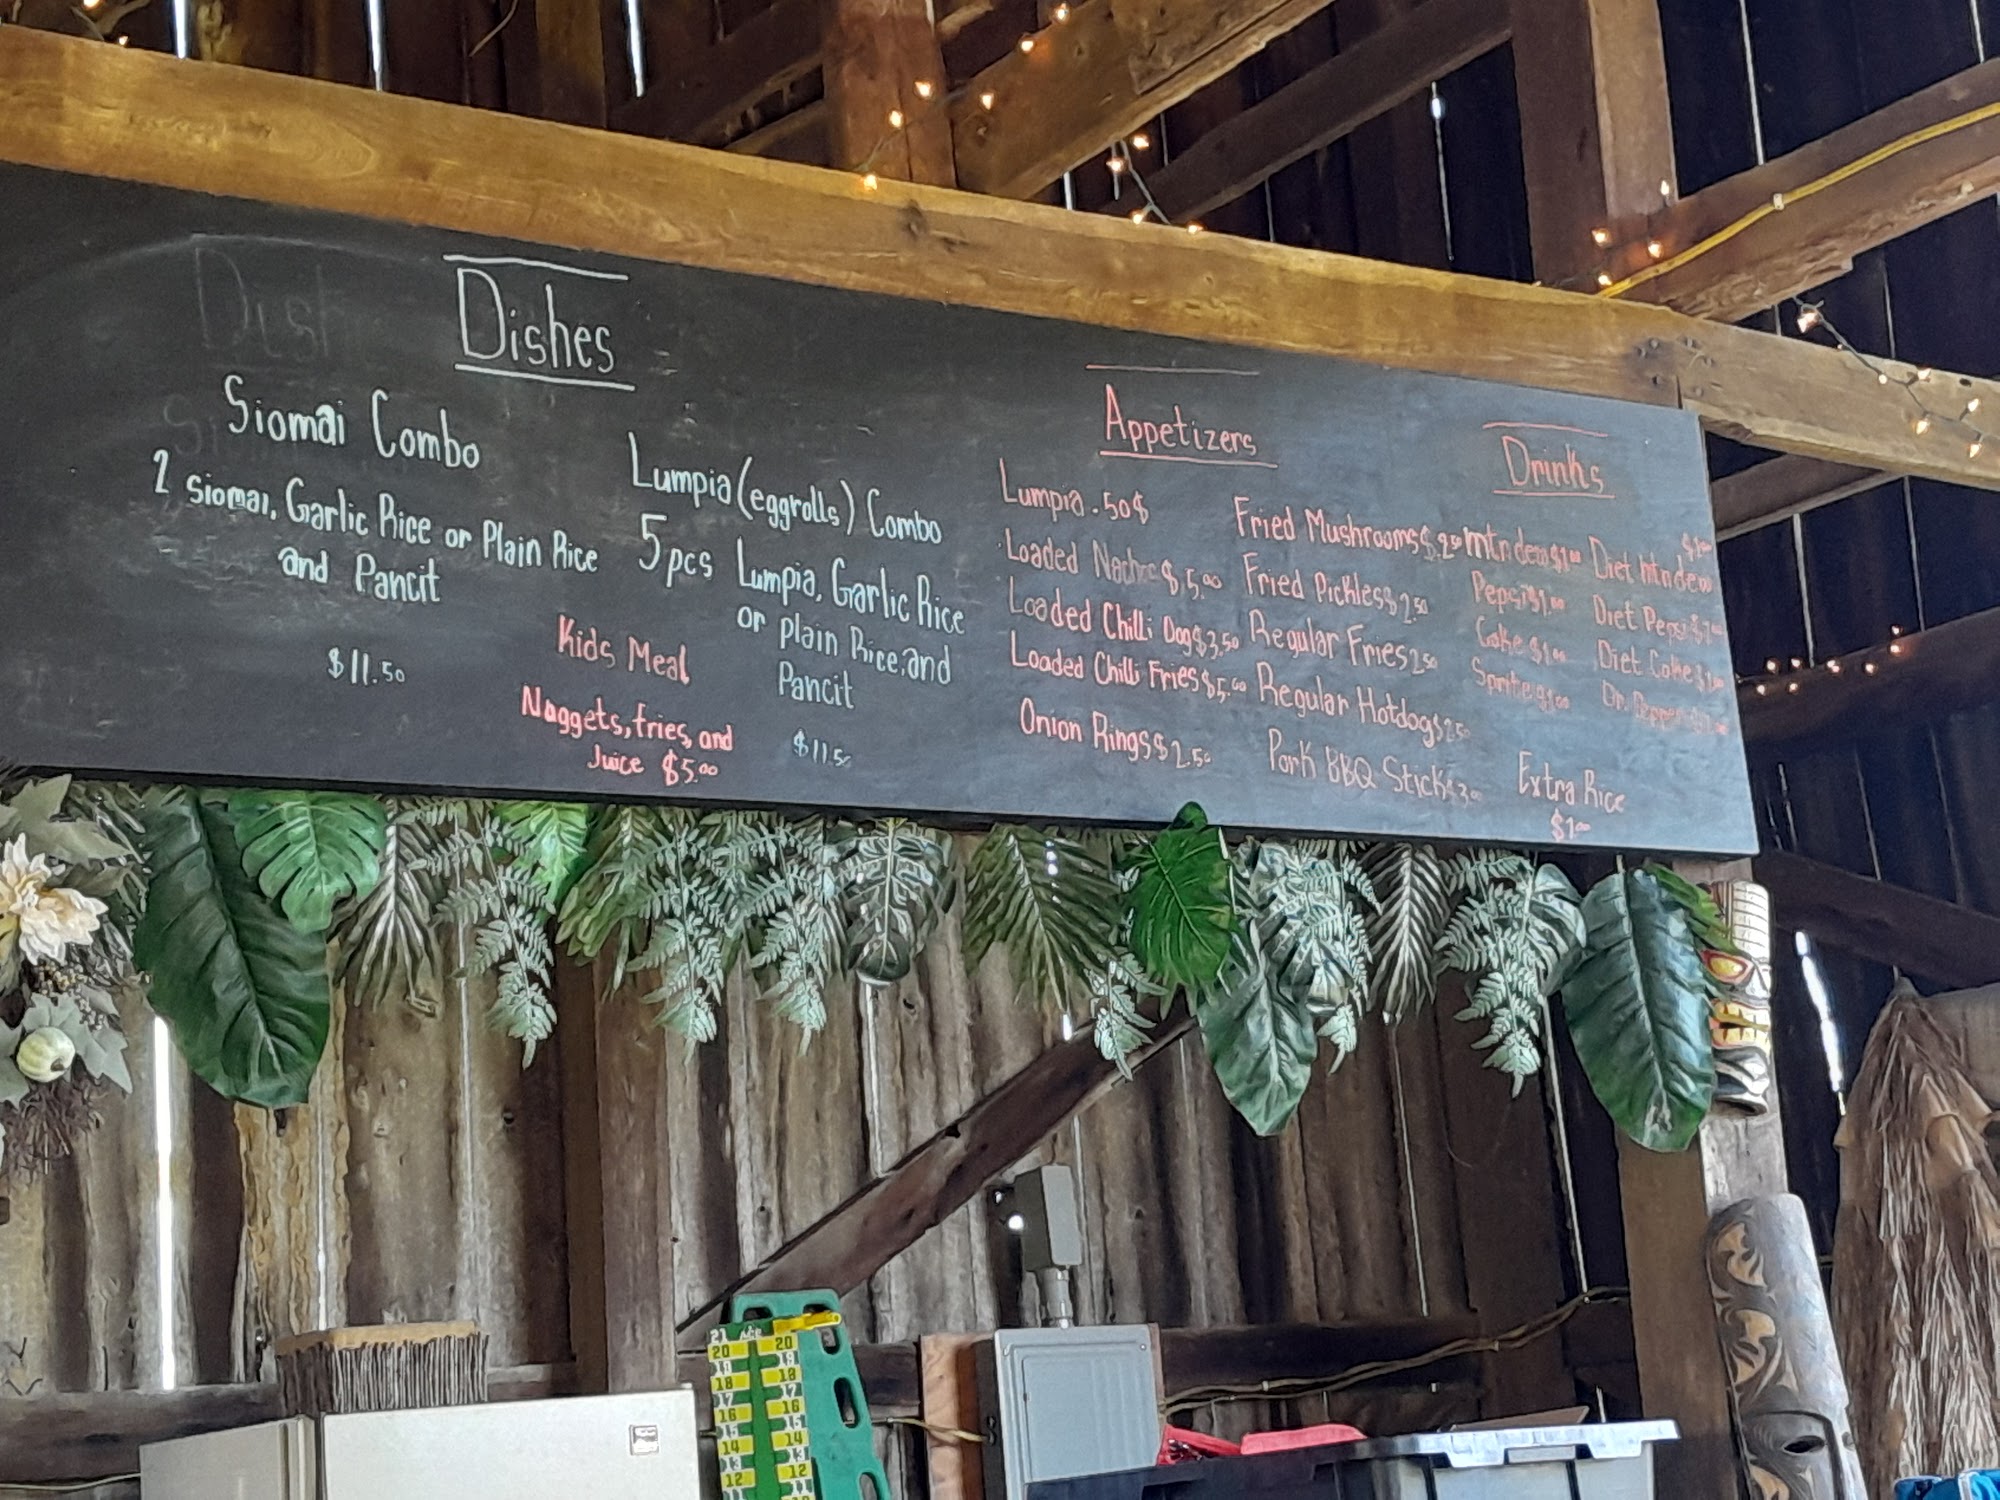 Dishes
Siomai Combo
2 siomai, Garlic Rice or Plain Rice
and Pancit
$11.50
Lumpia (eggrolls) Combo
5pcs Lumpia, Garlic Rice
or plain Rice, and
Pancit
$11.50
Kids Meal
Nuggets, fries, and
Juice $5.00
Appetizers
Lumpia .50$
Loaded Nachos $5.00
Loaded Chilli Dog $3.50
Loaded Chilli Fries $5.00
Onion Rings $2.50
Fried Mushrooms $2.50
Fried Pickles $2.50
Regular Fries 2.50
Regular Hotdog $2.50
Pork BBQ Stick $3.00
Drinks
mtn dew $1.00
Pepsi $1.00
Coke $1.00
Sprite $1.00
$1.00
Diet mtn dew
Diet Pepsi $1.00
Diet Coke $1.00
Dr. Pepper $1.00
Extra Rice
$1.00
21
20 20
19 19
18 18
17 17
16 16
15 15
14 14
13 13
12 12